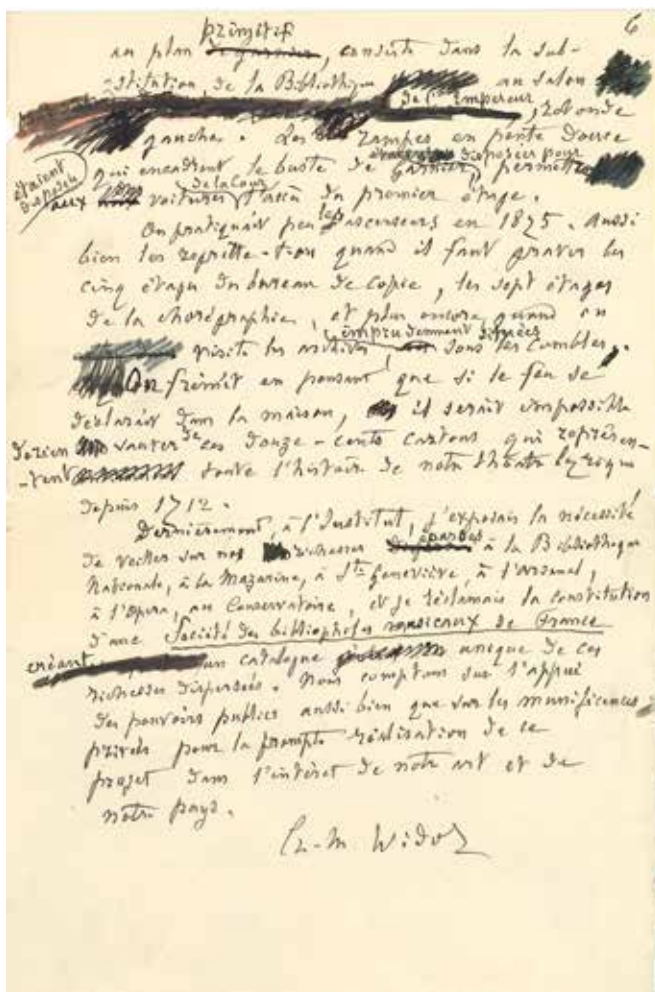 6
primitif
au plan, consiste dans la sub-
stitution de la Bibliothèque au salon
de l'Empereur, rotonde
gauche. Les rampes en pente douce
qui encadrent le buste de Garnier
étaient
disposées
disposées pour
permettre
aux voitures de la Cour l'accès du premier étage.
On pratiquait peu les ascenseurs en 1875. Aussi
bien les regrette-t-on quand il faut gravir les
cinq étages du bureau de copie, les sept étages
de la chorégraphie, et plus encore quand on
visite les archives, imprudemment situées sous les combles.
On frémit en pensant que si le feu se
déclarait dans la maison, il serait impossible
de rien sauver de ces douze-cents cartons qui représen-
-tent toute l'histoire de notre théâtre lyrique
depuis 1712.
Dernièrement, à l'Institut, j'exposais la nécessité
de veiller sur nos richesses éparses à la Bibliothèque
Nationale, à la Mazarine, à Ste Geneviève, à l'Arsenal,
à l'Opéra, au Conservatoire, et je réclamais la constitution
d'une Société des bibliophiles musicaux de France
créant un catalogue unique de ces
richesses dispersées. Nous comptons sur l'appui
des pouvoirs publics aussi bien que sur les munificences
privées pour la prompte réalisation de ce
projet dans l'intérêt de notre art et de
notre pays.
Ch-M Widor